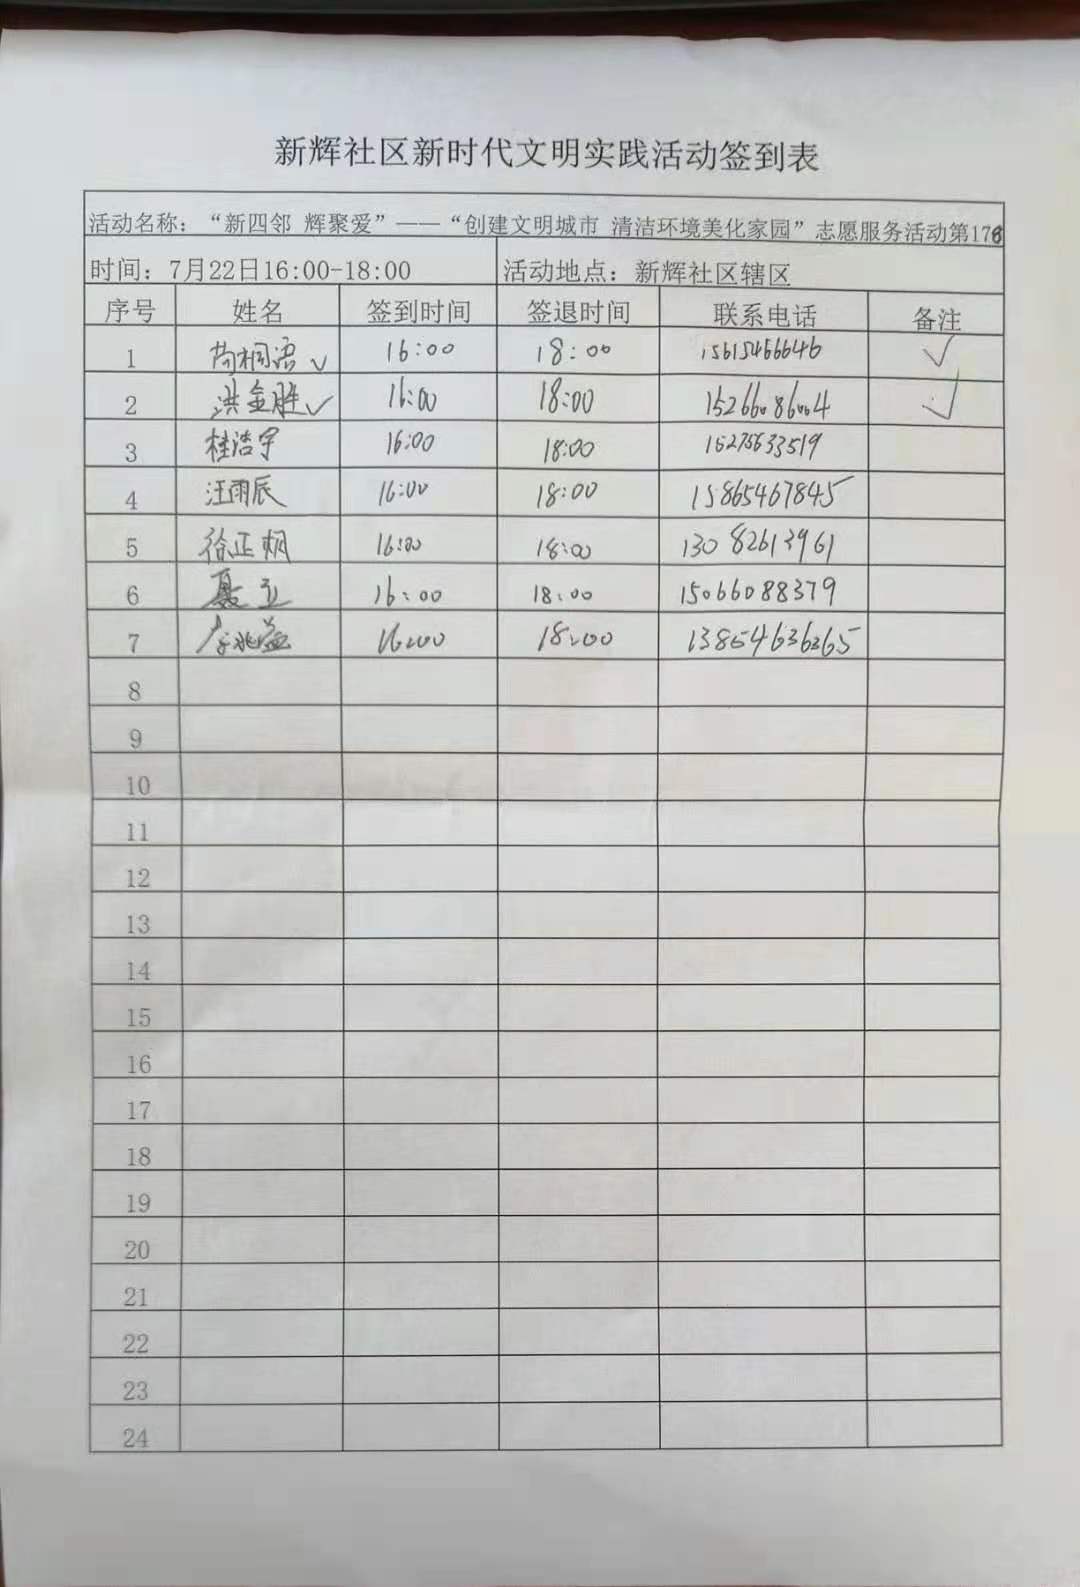 新辉社区新时代文明实践活动签到表
活动名称：“新四邻 辉聚爱”——“创建文明城市 清洁环境美化家园”志愿服务活动第178
时间：7月22日16:00-18:00 活动地点：新辉社区辖区
序号 姓名 签到时间 签退时间 联系电话 备注
1 桐语✓ 16:00 18:00 15615466646 ✓
2 洪金胜✓ 16:00 18:00 15266086004 ✓
3 桂浩宇 16:00 18:00 15275633519
4 汪雨辰 16:00 18:00 15865467845
5 徐正枫 16:00 18:00 13082613961
6 聂立 16:00 18:00 15066088379
7 16:00 18:00 13854636365
8
9
10
11
12
13
14
15
16
17
18
19
20
21
22
23
24